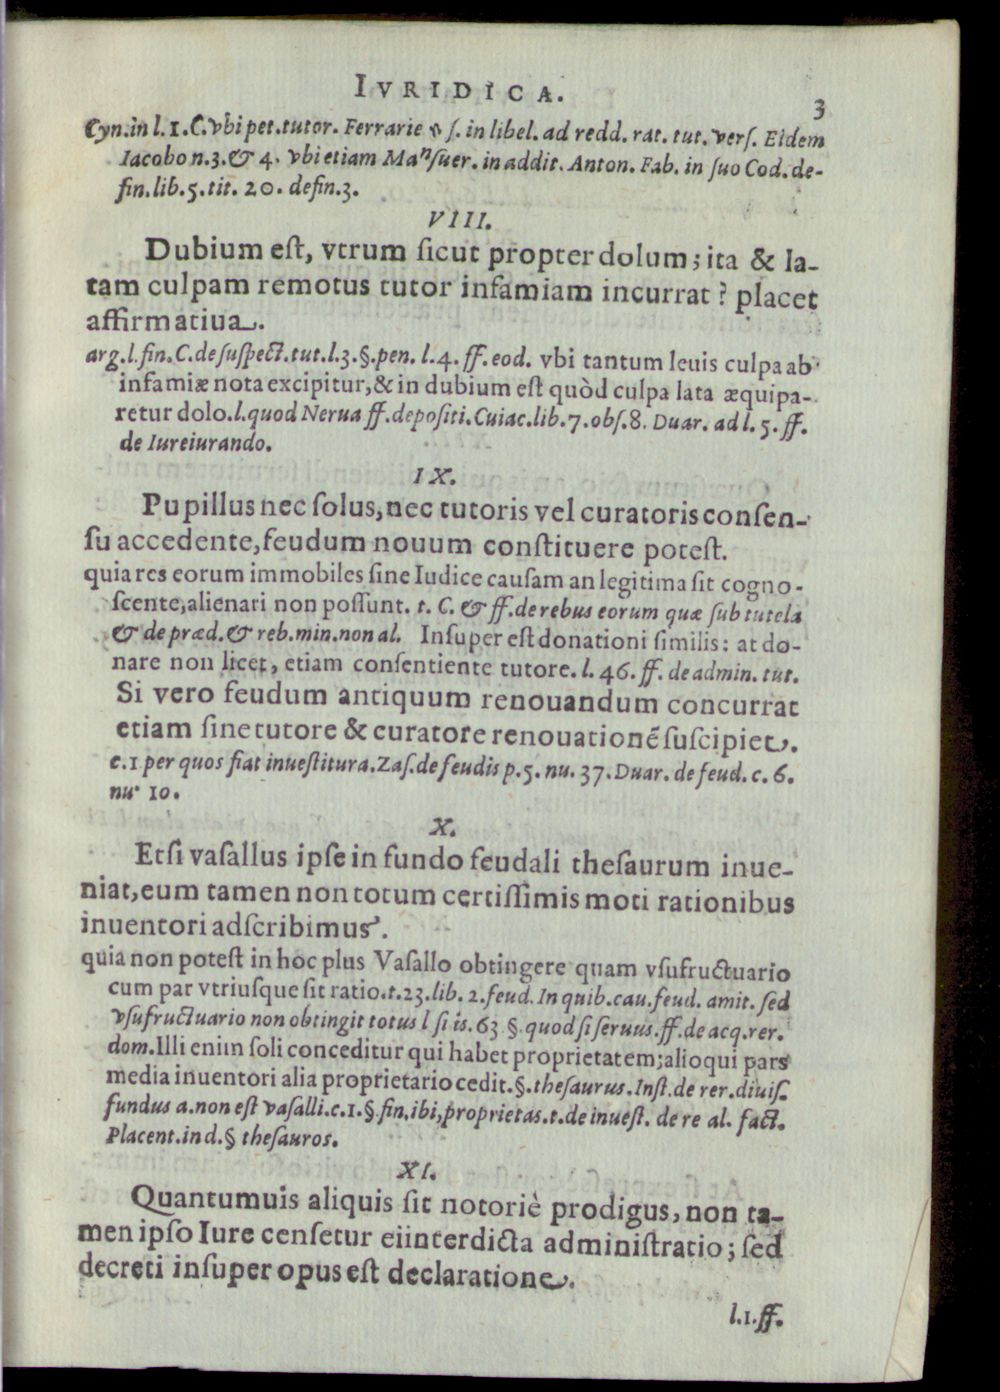 IVRIDICA.
3
Cyn. in l. 1. C. vbi pet. tutor. Ferrarie v ſ. in libel. ad redd. rat. tut. verſ. Eidem
Iacobo n. 3. & 4. vbi etiam Manſuer. in addit. Anton. Fab. in ſuo Cod. de-
fin. lib. 5. tit. 20. defin. 3.
VIII.
Dubium eſt, vtrum ſicut propter dolum; ita & la-
tam culpam remotus tutor infamiam incurrat? placet
affirmatiua.
arg. l. fin. C. de ſuſpect. tut. l. 3. §. pen. l. 4. ff. eod. vbi tantum leuis culpa ab
infamiæ nota excipitur, & in dubium eſt quòd culpa lata æquipa-
retur dolo. l. quod Nerua ff. depoſiti. Cuiac. lib. 7. obſ. 8. Duar. ad l. 5. ff.
de Iureiurando.
IX.
Pupillus nec ſolus, nec tutoris vel curatoris conſen-
ſu accedente, feudum nouum conſtituere poteſt.
quia res eorum immobiles ſine Iudice cauſam an legitima ſit cogno-
ſcente, alienari non poſſunt. t. C. & ff. de rebus eorum quæ ſub tutela
& de præd. & reb. min. non al. Inſuper eſt donationi ſimilis: at do-
nare non licet, etiam conſentiente tutore. l. 46. ff. de admin. tut.
Si vero feudum antiquum renouandum concurrat
etiam ſine tutore & curatore renouationẽ ſuſcipiet.
c. 1 per quos fiat inueſtitura. Zaſ. de feudis p. 5. nu. 37. Duar. de feud. c. 6.
nu. 10.
X.
Etſi vaſallus ipſe in fundo feudali theſaurum inue-
niat, eum tamen non totum certiſſimis moti rationibus
inuentori adſcribimus.
quia non poteſt in hoc plus Vaſallo obtingere quam vſufructuario
cum par vtriusque ſit ratio. t. 23. lib. 2. feud. In quib. cau. feud. amit. ſed
vſufructuario non obtingit totus l ſi is. 63 §. quod ſi ſeruus. ff. de acq. rer.
dom. Illi enim ſoli conceditur qui habet proprietatem; alioqui pars
media inuentori alia proprietario cedit. §. theſaurus. Inſt. de rer. diuiſ.
fundus a. non eſt vaſalli. c. 1. §. fin, ibi, proprietas. t. de inueſt. de re al. fact.
Placent. ind. § theſauros.
XI.
Quantumuis aliquis ſit notoriè prodigus, non ta-
men ipſo Iure cenſetur ei interdicta adminiſtratio; ſed
decreti inſuper opus eſt declaratione.
l. 1. ff.